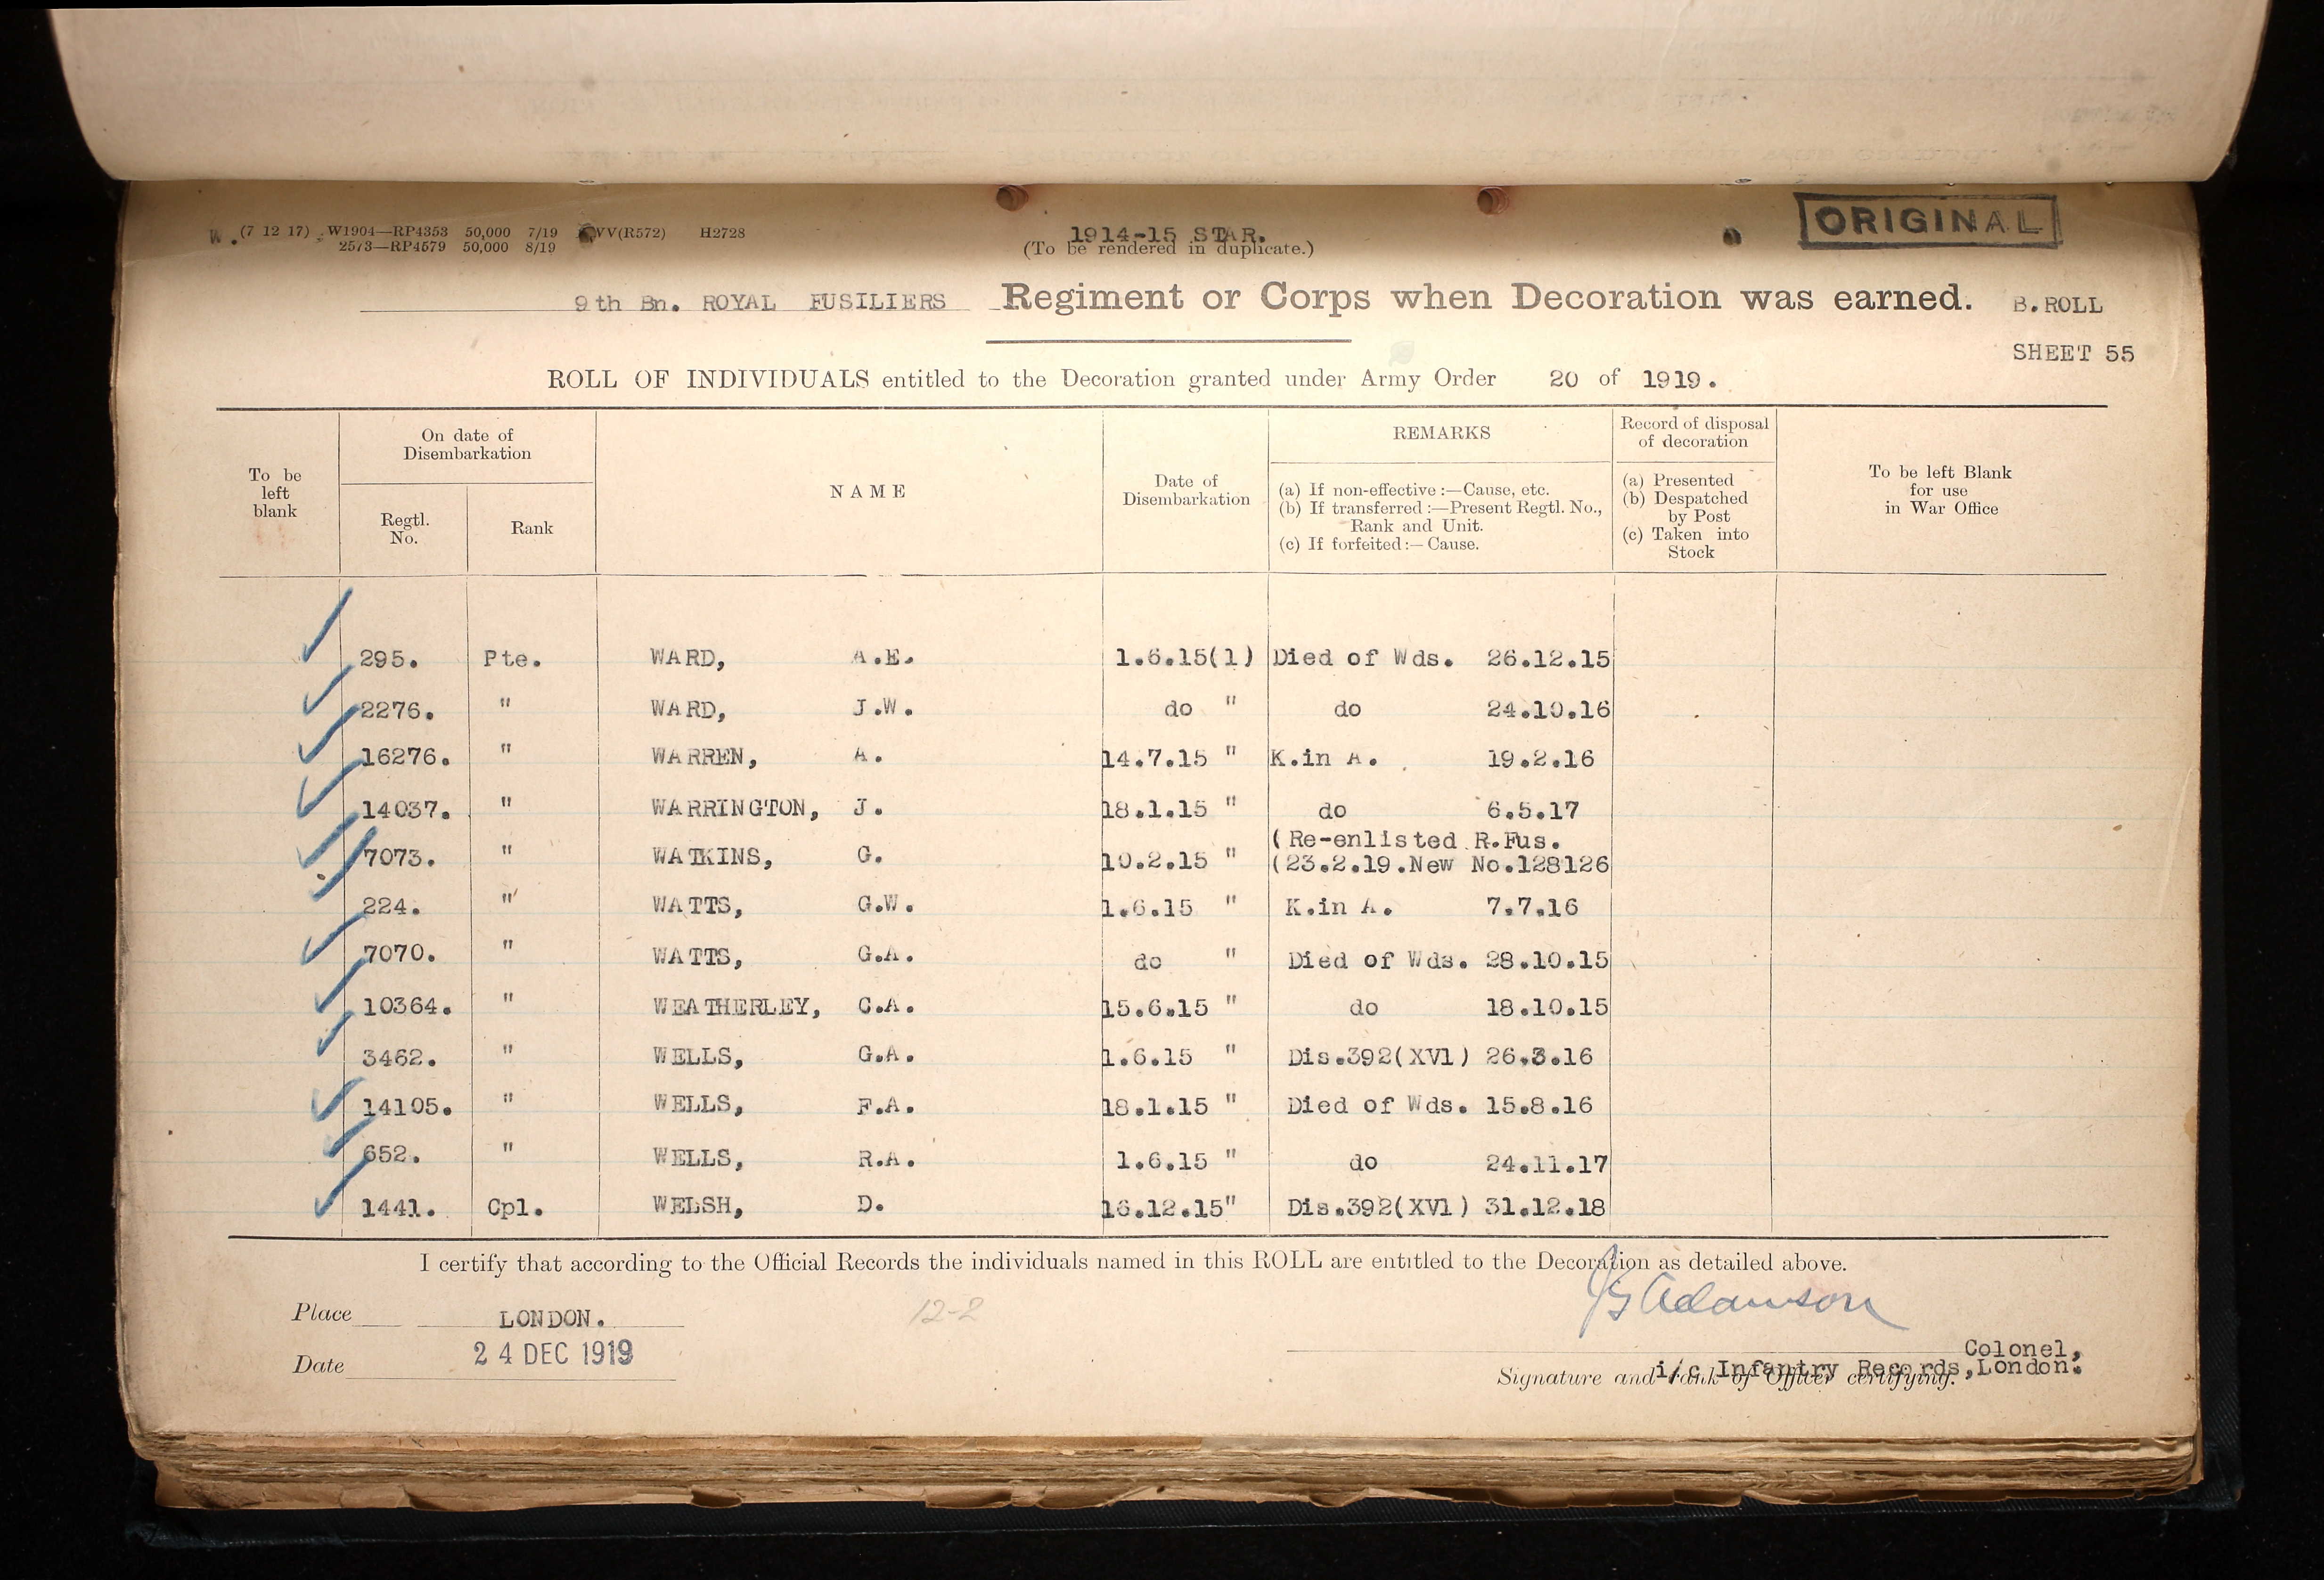 (7 12 17) W1904—RP4353 50,000 7/19 VV(R572) H2728
2573—RP4579 50,000 8/19
1914-15 STAR.
(To be rendered in duplicate.)
ORIGINAL
9th Bn. ROYAL FUSILIERS Regiment or Corps when Decoration was earned. B.ROLL
SHEET 55
ROLL OF INDIVIDUALS entitled to the Decoration granted under Army Order 20 of 1919.
To be left blank
On date of Disembarkation
Regtl. No.
Rank
NAME
Date of Disembarkation
REMARKS
(a) If non-effective :—Cause, etc.
(b) If transferred :—Present Regtl. No., Rank and Unit.
(c) If forfeited :—Cause.
Record of disposal of decoration
(a) Presented
(b) Despatched by Post
(c) Taken into Stock
To be left Blank for use in War Office
295. Pte. WARD, A.E. 1.6.15(1) Died of Wds. 26.12.15
2276. " WARD, J.W. do " do 24.10.16
16276. " WARREN, A. 14.7.15 " K.in A. 19.2.16
14037. " WARRINGTON, J. 18.1.15 " do 6.5.17
7073. " WATKINS, G. 10.2.15 " (Re-enlisted R.Fus.
(23.2.19.New No.128126
224. " WATTS, G.W. 1.6.15 " K.in A. 7.7.16
7070. " WATTS, G.A. do " Died of Wds. 28.10.15
10364. " WEATHERLEY, C.A. 15.6.15 " do 18.10.15
3462. " WELLS, G.A. 1.6.15 " Dis.392(XVl) 26.3.16
14105. " WELLS, F.A. 18.1.15 " Died of Wds. 15.8.16
652. " WELLS, R.A. 1.6.15 " do 24.11.17
1441. Cpl. WELSH, D. 16.12.15" Dis.392(XVl) 31.12.18
I certify that according to the Official Records the individuals named in this ROLL are entitled to the Decoration as detailed above.
Place LONDON.
12-2
Adamson
Date 24 DEC 1919
Colonel,
i/c Infantry Records, London.
Signature and rank of Officer certifying.